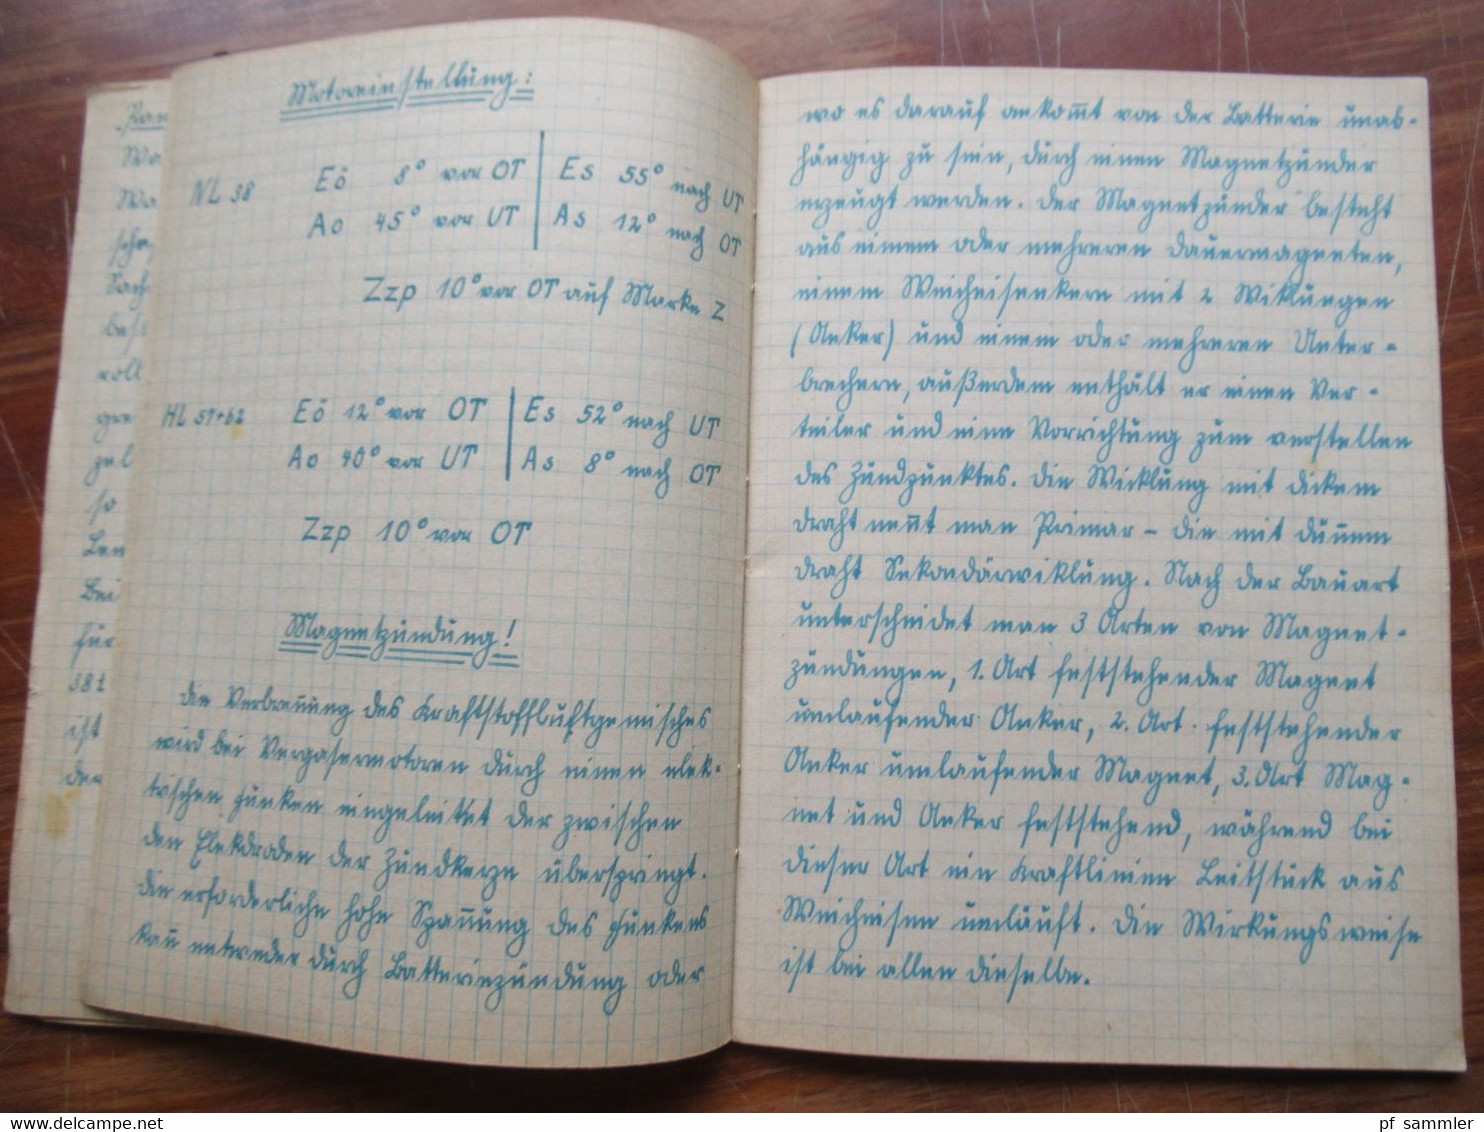 Ran
Wa
Wa
Sach
voll
gra
zul
so
Len
Bei
für
38t
ist
der
Motoreinstellung:
NL 38 Eö 8° vor OT Es 55° nach UT
Ao 45° vor UT As 12° nach OT
Zzp 10° vor OT auf Marke Z
HL 57+62 Eö 12° vor OT Es 52° nach UT
Ao 40° vor UT As 8° nach OT
Zzp 10° vor OT
Magnetzündung!
Die Verbrennung des Kraftstoffluftgemisches
wird bei Vergasermotoren durch einen elek-
trischen Funken eingeleitet der zwischen
den Elekdroden der Zündkerze überspringt.
Die erforderliche hohe Spannung des Funkens
kann entweder durch Batteriezündung oder
wo es darauf ankommt von der Batterie unab-
hängig zu sein, durch einen Magnetzünder
erzeugt werden. Der Magnetzünder besteht
aus einem oder mehreren Dauermagneten,
einem Weicheisenkern mit 2 Wiklungen
(Anker) und einem oder mehreren Unter-
brechern, außerdem enthält er einen Ver-
teiler und eine Vorrichtung zum verstellen
des Zündpunktes. Die Wicklung mit dickem
Draht nennt man Primar- die mit dünnem
Draht Sekondärwiklung. Nach der Bauart
unterscheidet man 3 Arten von Magnet-
zündungen, 1. Art feststehender Magnet
umlaufender Anker, 2. Art. feststehender
Anker umlaufender Magnet, 3. Art Mag-
net und Anker feststehend, während bei
dieser Art ein Kraftlinien Leitstück aus
Weicheisen umläuft. Die Wirkungsweise
ist bei allen dieselbe.
www.delcampe.net
pf_sammler